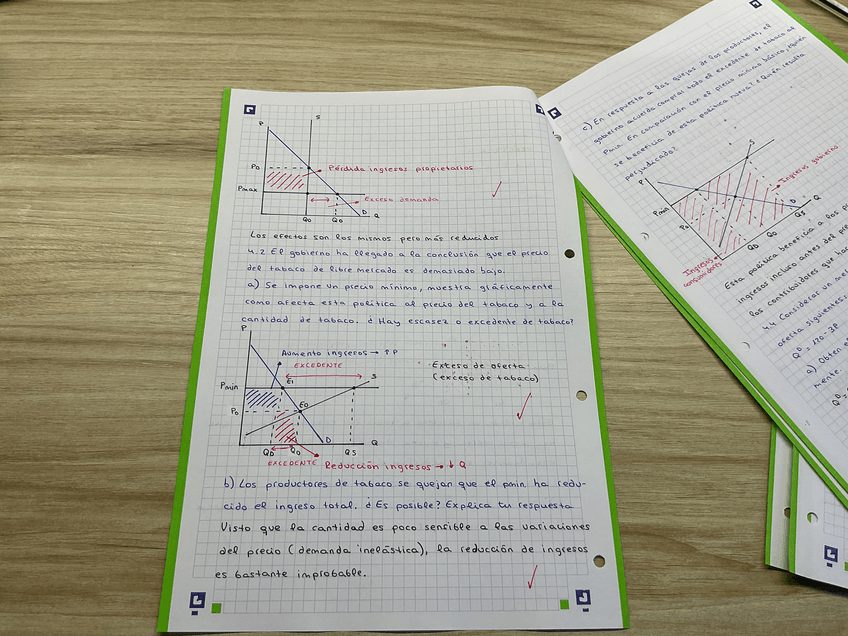 P
S
Po
Pérdida ingresos propietarios
Pmax
Exceso demanda
D
Q
Qo
QD
Los efectos son los mismos pero más reducidos
4.2 El gobierno ha llegado a la conclusión que el precio
del tabaco de libre mercado es demasiado bajo.
a) Se impone un precio mínimo, muestra gráficamente
como afecta esta política al precio del tabaco y a la
cantidad de tabaco. ¿Hay escasez o excedente de tabaco?
P
Aumento ingresos → ↑P
EXCEDENTE
Exceso de oferta
(exceso de tabaco)
Pmin
E1
S
Po
Eo
D
Q
QD
Qo
QS
EXCEDENTE
Reducción ingresos → ↓Q
b) Los productores de tabaco se quejan que el pmin ha redu-
cido el ingreso total. ¿Es posible? Explica tu respuesta
Visto que la cantidad es poco sensible a las variaciones
del precio (demanda inelástica), la reducción de ingresos
es bastante improbable.
c) En respuesta a las quejas de los productores, el
gobierno acuerda comprar todo el excedente de tabaco al
Pmin. En comparación con el precio mínimo básico, ¿quién
se beneficia de esta política nueva? ¿Quién resulta
perjudicado?
P
S
Ingresos gobierno
Pmin
Po
D
Q
QD
Qo
QS
Ingresos
consumidores
Esta política beneficia a los
ingresos incluso antes del
los contribuidores que
4.4 Considerar un
oferta siguientes:
Q^D = 120 - 3P
a) Obten
mente.